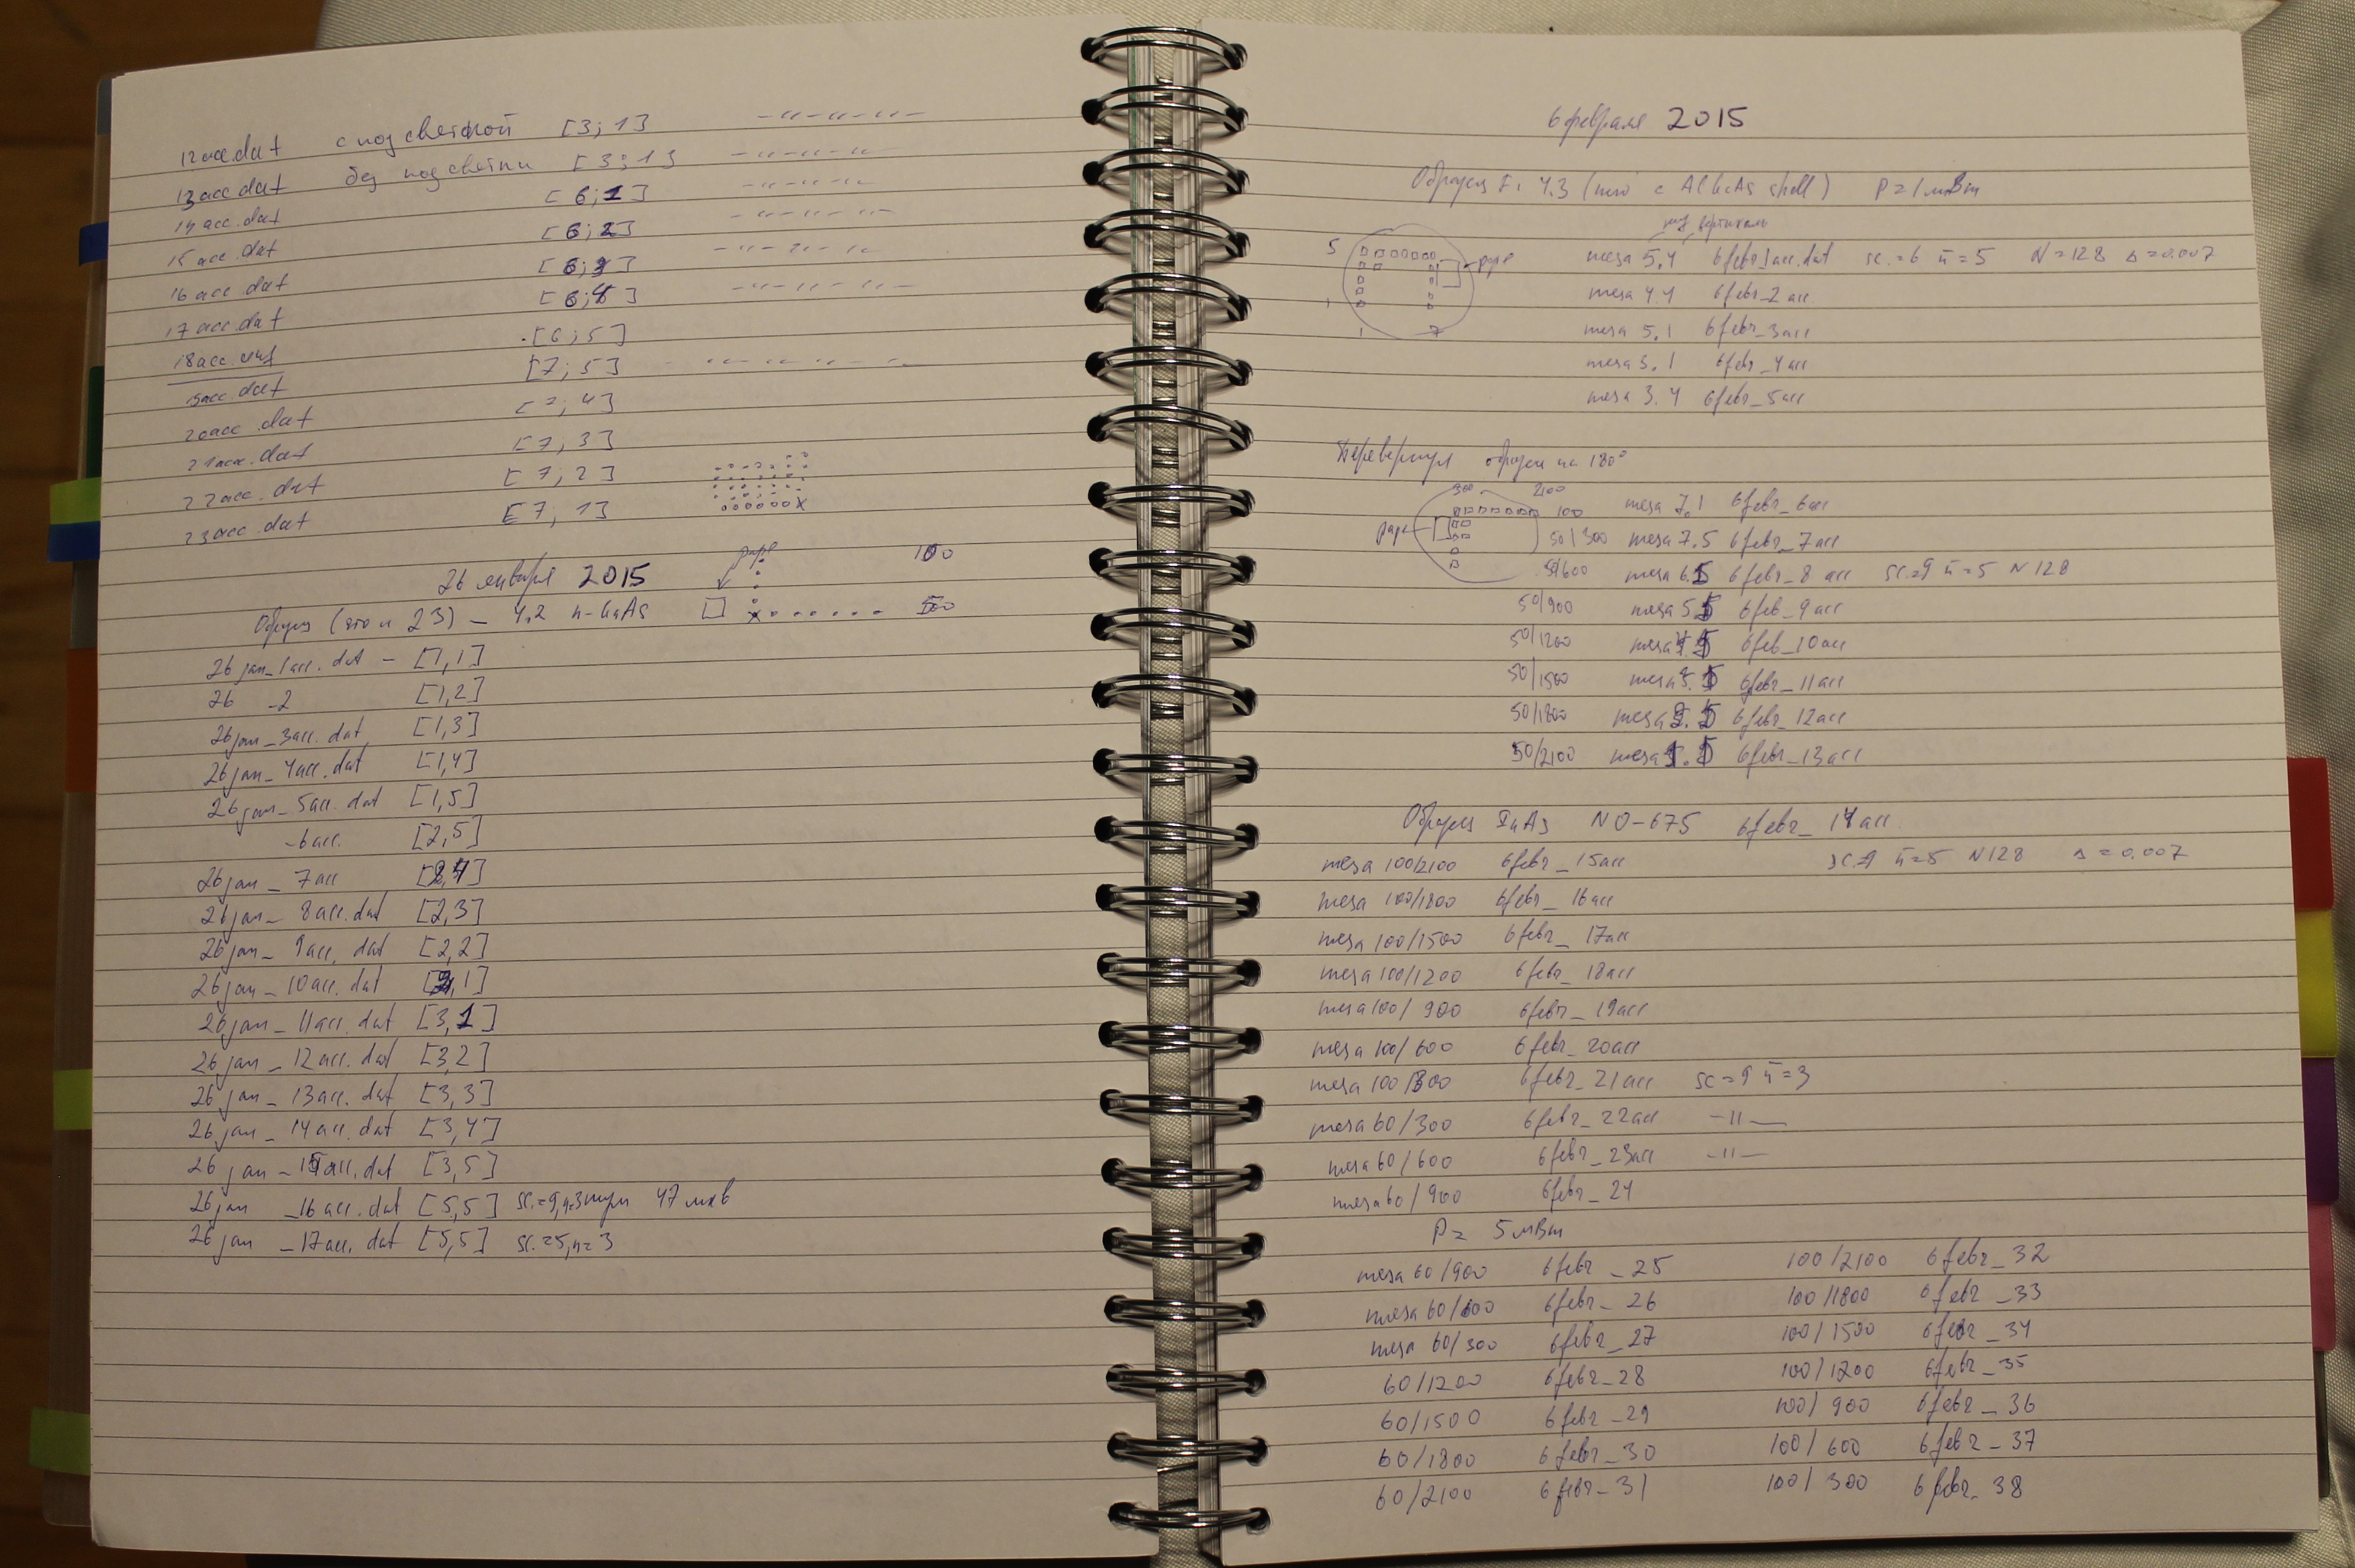 12acc.dat с подсветкой [3;1] -"-"-"-
13acc.dat без подсветки [3;1] -"-"-"-
14acc.dat [6;1] -"-"-"-
15acc.dat [6;2] -"-"-"-
16acc.dat [6;3] -"-"-"-
17acc.dat [6;4] -"-"-"-
18acc. [6;5]
19acc.dat [7;5] -"-"-"-
20acc.dat [7;4]
21acc.dat [7,3]
22acc.dat [7,2]
23acc.dat [7,1]
26 января 2015 pape 100
Образец (этот 23) – 4.2 n-GaAs
26jan_1acc.dat – [1,1]
26 _2 [1,2]
26jan_3acc.dat [1,3]
26jan_4acc.dat [1,4]
26jan_5acc.dat [1,5]
_6acc. [2,5]
26jan_7acc [2,4]
26jan_8acc.dat [2,3]
26jan_9acc.dat [2,2]
26jan_10acc.dat [2,1]
26jan_11acc.dat [3,1]
26jan_12acc.dat [3,2]
26jan_13acc.dat [3,3]
26jan_14acc.dat [3,4]
26jan_15acc.dat [3,5]
26jan_16acc.dat [5,5] sc.=9, n=3 47 мкВ
26jan_17acc.dat [5,5] sc.=5, n=3
6 февраля 2015
Образец 4.3 (с AlGaAs shell) P=1мВт
вертикаль
5 pape mesa 5.4 6febr_1acc.dat sc.=6 n=5 N=128 s=0.007
mesa 4.4 6febr_2acc
1 7 mesa 5.1 6febr_3acc
mesa 3.1 6febr_4acc
mesa 3.4 6febr_5acc
Перевернул образец на 180°
300 2100
pape 100 mesa 7.1 6febr_6acc
50/300 mesa 7.5 6febr_7acc
50/600 mesa 6.5 6febr_8acc sc.=9 n=5 N128
50/900 mesa 5.5 6feb_9acc
50/1200 mesa 4.5 6feb_10acc
50/1500 mesa 3.5 6febr_11acc
50/1800 mesa 2.5 6febr_12acc
50/2100 mesa 1.5 6febr_13acc
Образец InAs NO-675 6febr_14acc
mesa 100/2100 6febr_15acc n=5 N128 s=0.007
mesa 100/1800 6febr_16acc
mesa 100/1500 6febr_17acc
mesa 100/1200 6febr_18acc
mesa 100/900 6febr_19acc
mesa 100/600 6febr_20acc
mesa 100/300 6febr_21acc sc=9 n=3
mesa 60/300 6febr_22acc -"-
mesa 60/600 6febr_23acc -"-
mesa 60/900 6febr_24
P= 5 мВт
mesa 60/900 6febr_25 100/2100 6febr_32
mesa 60/600 6febr_26 100/1800 6febr_33
mesa 60/300 6febr_27 100/1500 6febr_34
60/1200 6febr_28 100/1200 6febr_35
60/1500 6febr_29 100/900 6febr_36
60/1800 6febr_30 100/600 6febr_37
60/2100 6febr_31 100/300 6febr_38